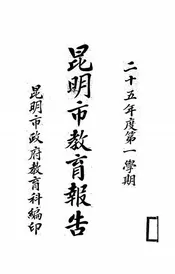 二十五年度第一學期
昆明市教育報告
昆明市政府教育科編印